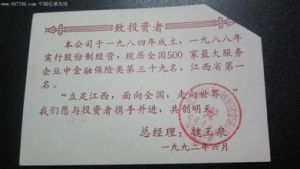 致投资者
本公司于一九八四年成立，一九八八年
实行股份制经营，现居全国500家最大服务
企业中金融保险类第三十九名，江西省第一
名。
“立足江西，面向全国，走向世界。”
我们愿与投资者携手并进，共创明天。
总经理：魏玉泉
一九九二年六月